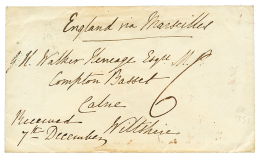 England via Marseilles
G. H. Walker Heneage Esqre M.P.
Compton Basset
Calne
Wiltshire
Received
7th December